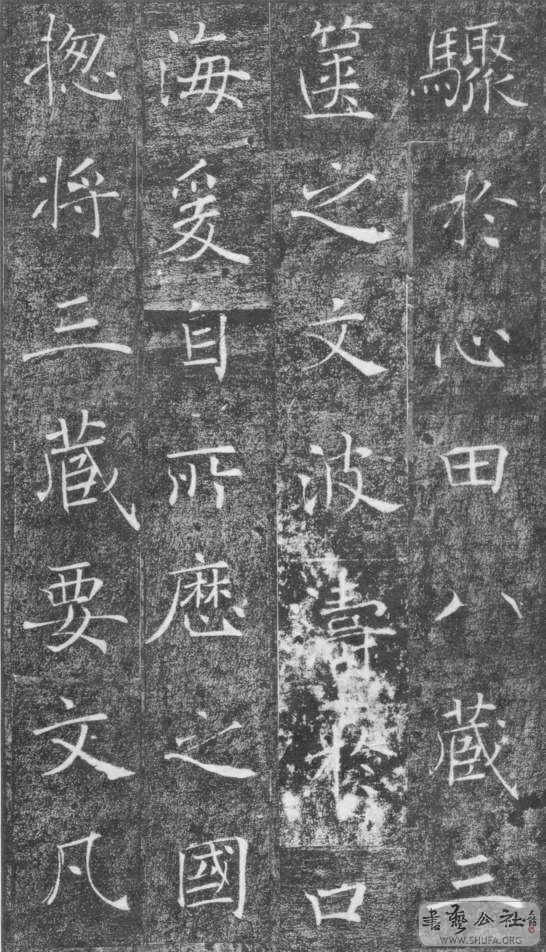 驟於心田八藏三
篋之文波濤於口
海爰自所歷之國
揔将三藏要文凡
書藝公社
WWW.SHUFA.ORG